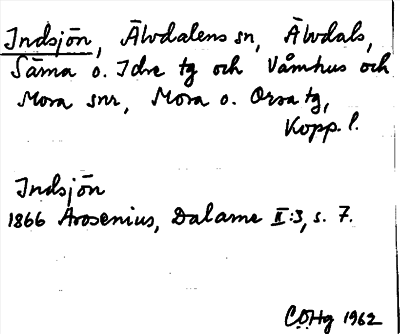 Indsjön, Älvdalens sn, Älvdals,
Särna o. Idre tg och Våmhus och
Mora snr, Mora o. Orsa tg,
Kopp. l.
Indsjön
1866 Arosenius, Dalarne II:3, s. 7.
COHg 1962